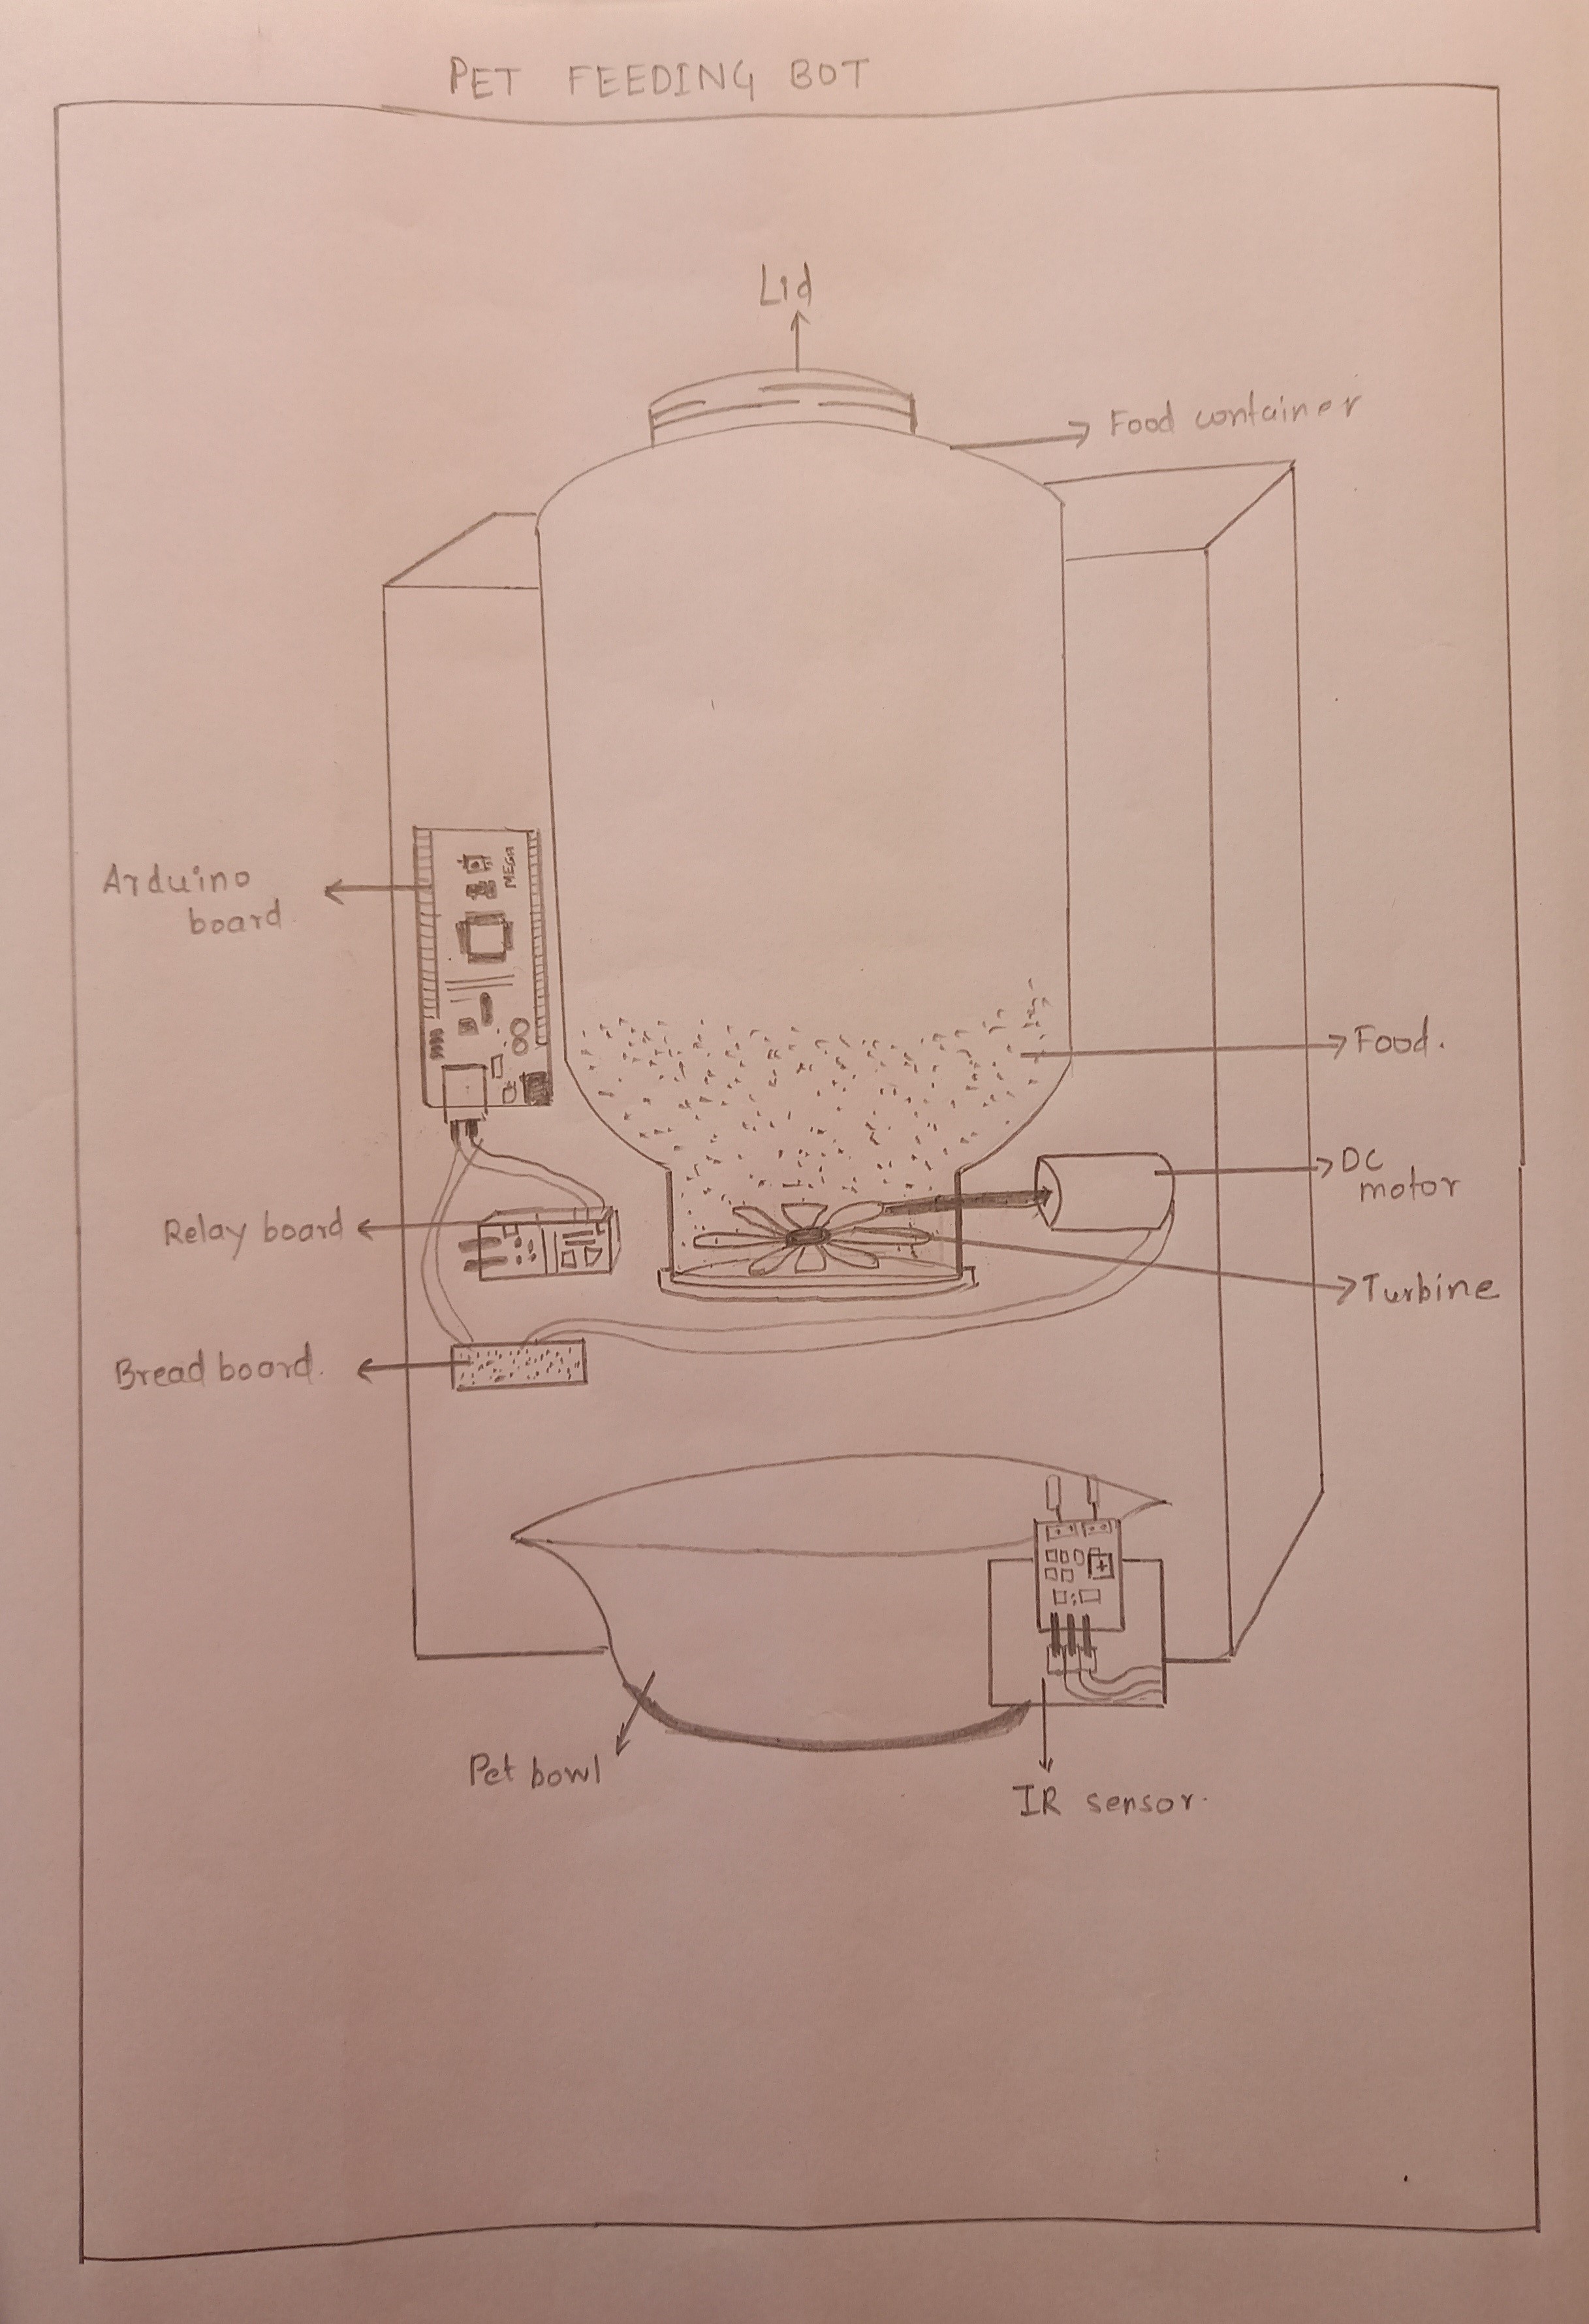 PET FEEDING BOT
Lid
Food container
Arduino
board
MEGA
Food.
DC
motor
Relay board
Turbine
Bread board.
Pet bowl
IR sensor.